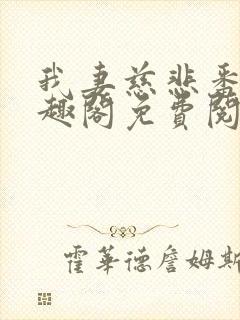 我妻慈悲番
趣阁免費閱
霍華德詹姆斯